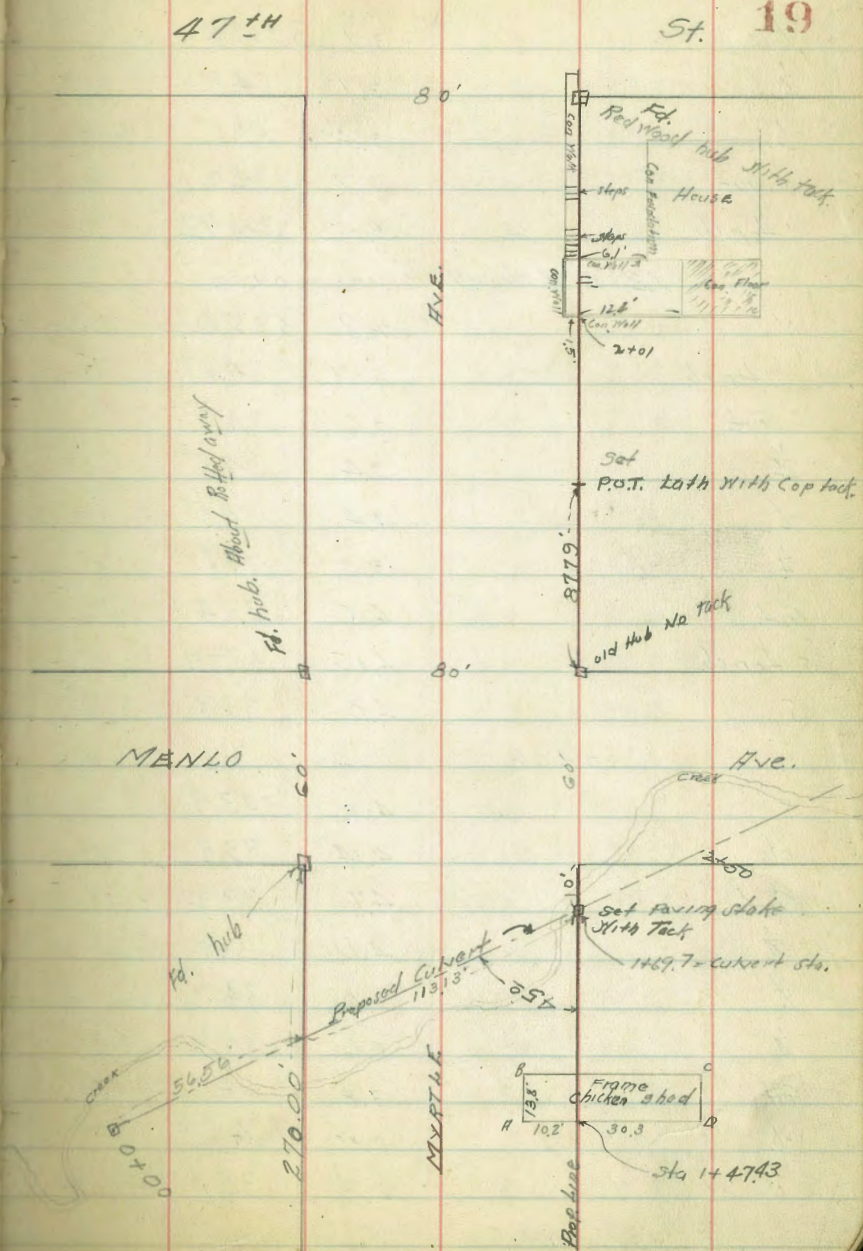 47TH St. 19
80'
Fd.
Red Wood hub With tack.
Con Wall
steps
House
Con Foundation
steps
6.1'
Con. Wall
Con. Wall
Con. Floor
12.2'
Con. Wall
1.5'
2+01
AVE.
Fd. hub. About Rotted away
Set
P.O.T. Lath With Cop tack.
87.79'
old Hub No tack
80'
MENLO Ave.
60'
60'
Creek
2+50
10'
set Paving stake
With Tack
1+69.7 = Culvert sta.
Fd. hub
Proposed Culvert
113.13'
45°
Creek
56.56'
0+00
270.00'
MYRTLE
B C
Frame
Chicken shed
13.8'
A D
10.2' 30.3
Sta 1+47.43
Prop Line